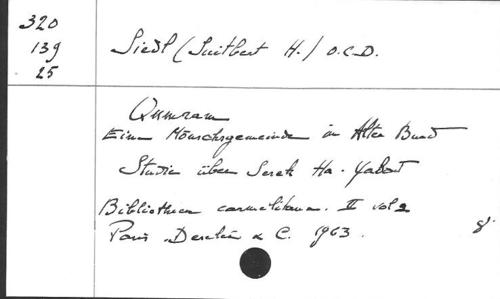 320
139
25
Siedl (Suitbert H.) O.C.D.
Qumram
Eine Mönchsgemeinde im Alten Bund
Studie über Serek Ha-Yahad
Bibliotheca carmelitana. II vol 2
Paris Desclée & C. 1963.
8°